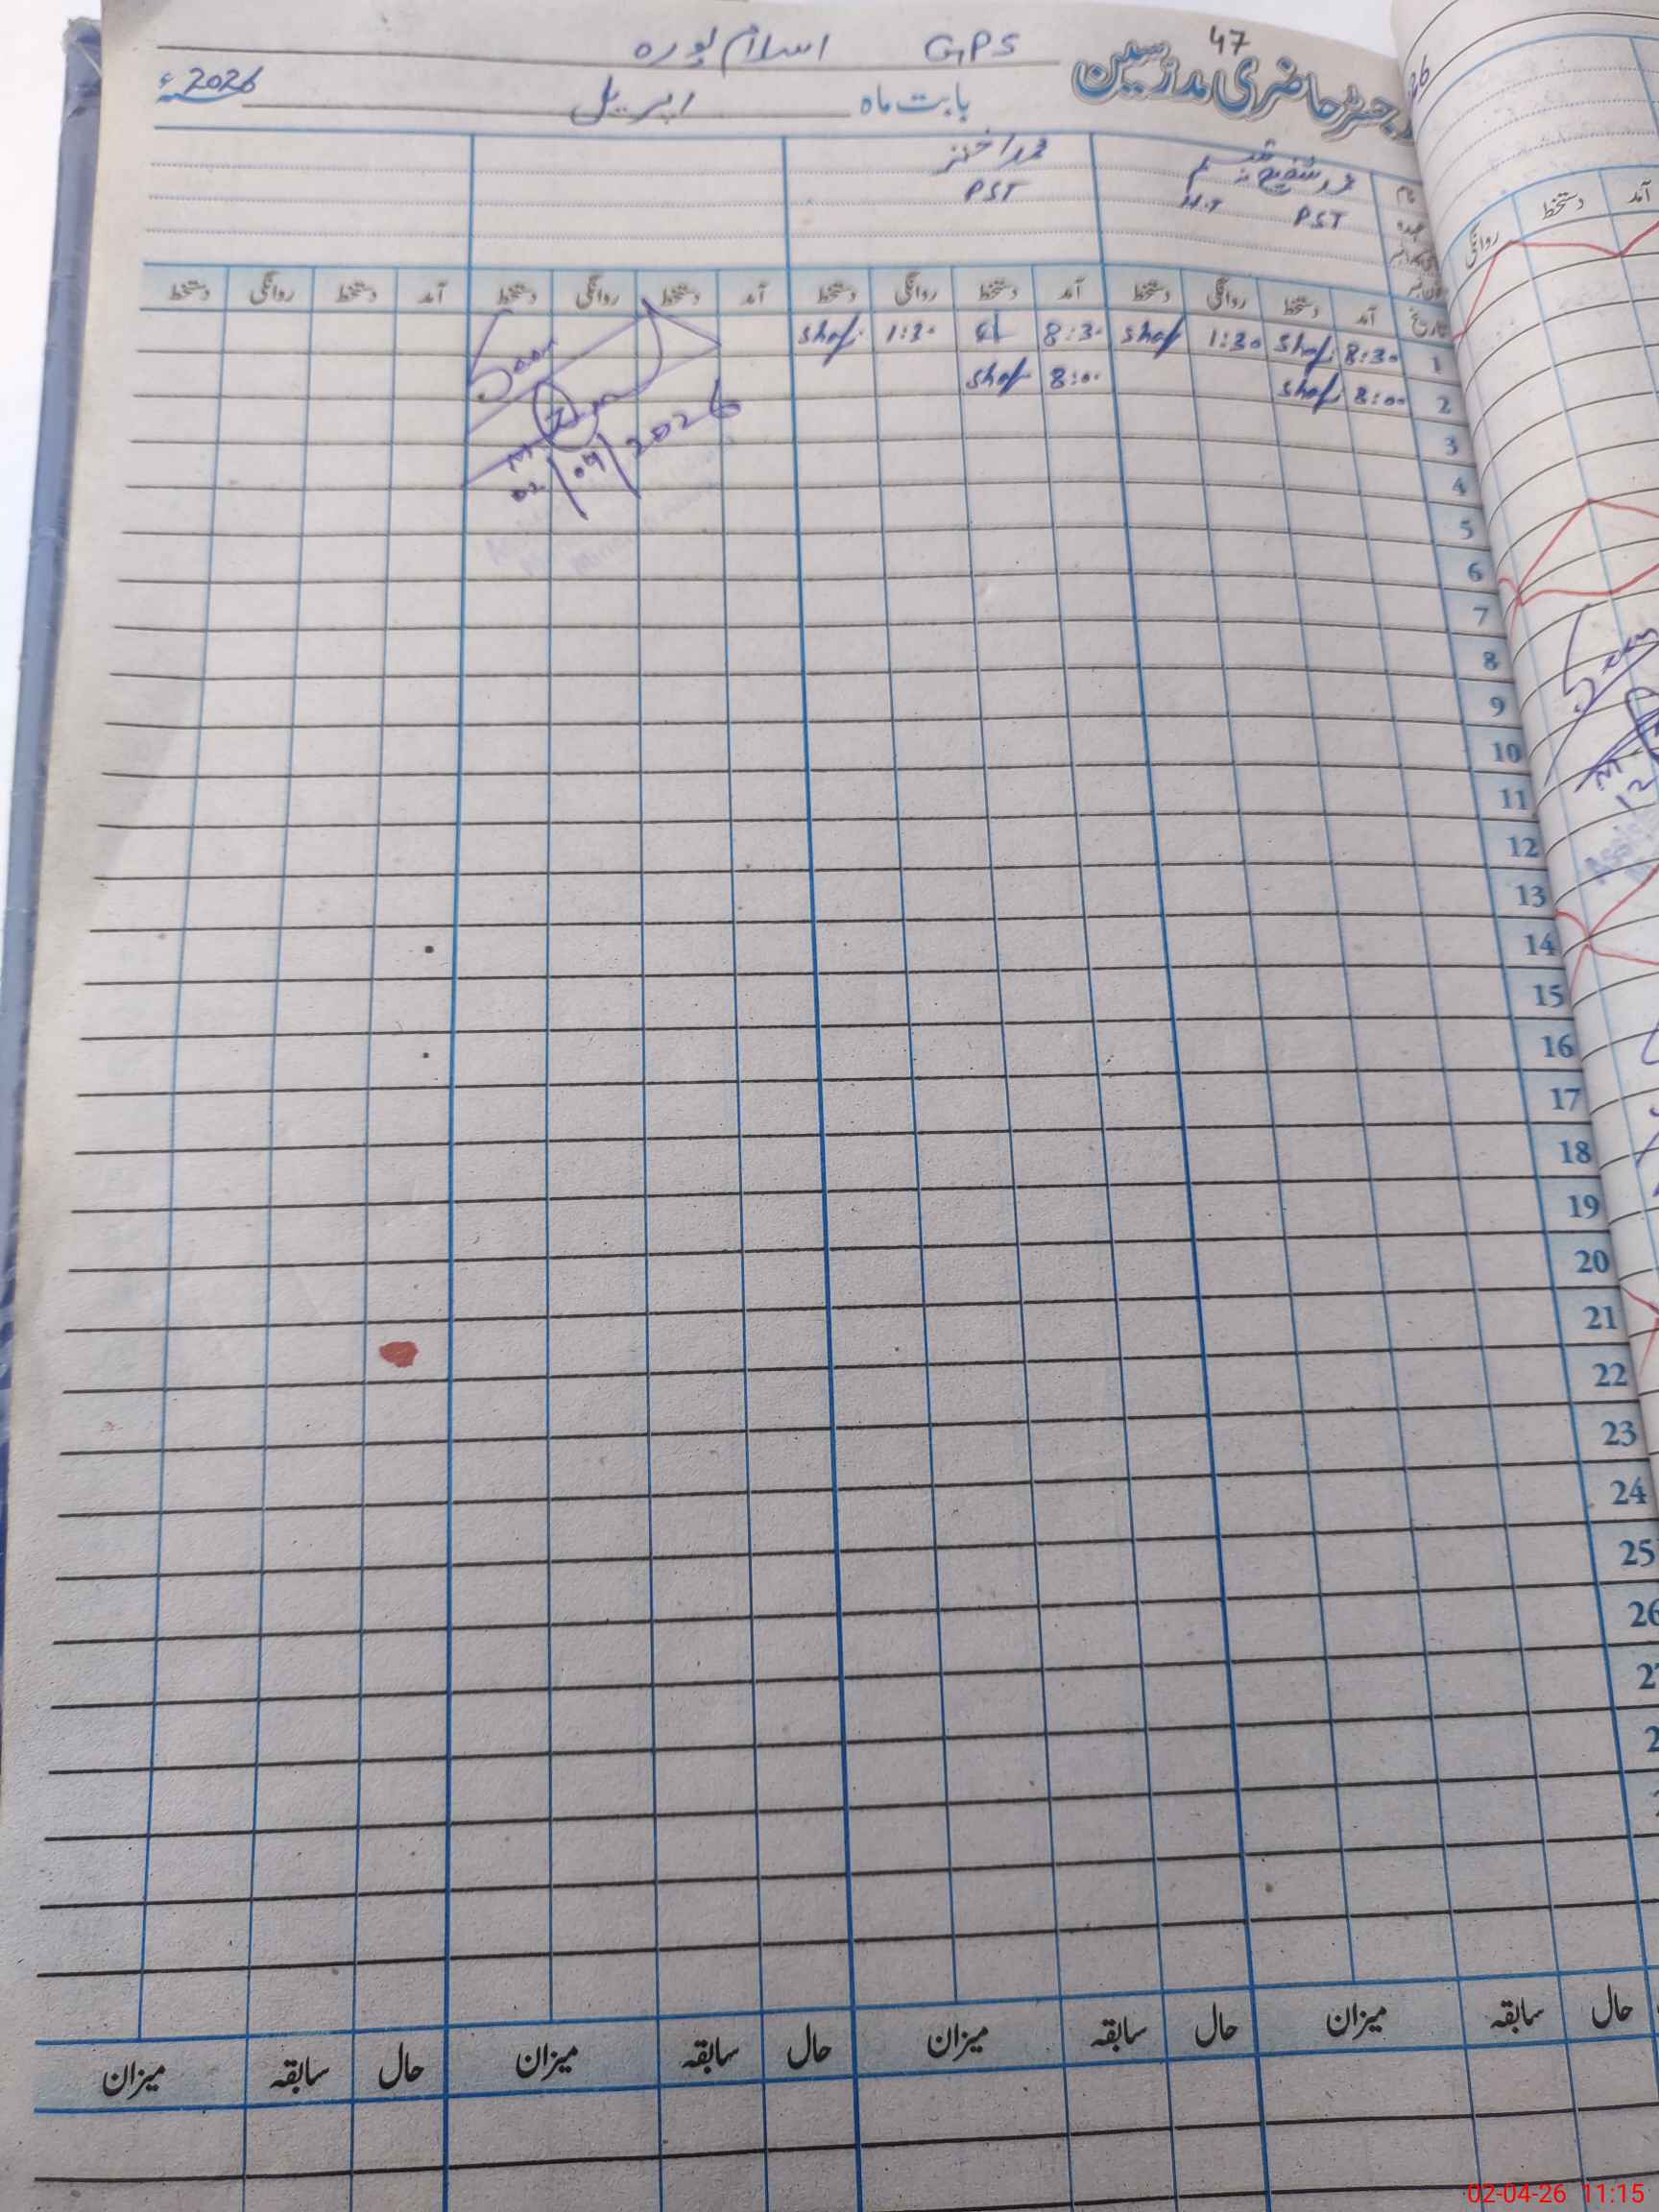 47
رجسٹر حاضری مدرسین GPS اسلام پورہ
بابت ماہ اپریل 2026ء
نام محمد شفیع محمد اختر
عہدہ PST H.T PST
تاریخ آمد دستخط روانگی دستخط آمد دستخط روانگی دستخط آمد دستخط روانگی دستخط آمد دستخط روانگی دستخط
1 8:30 Shafi 1:30 Shafi 8:30 1:30 Shafi
2 8:00 Shafi 8:00 Shafi
Seen
02/04/2026
3
4
5
6
7
8
9
10
11
12
13
14
15
16
17
18
19
20
21
22
23
24
25
26
حال سابقہ میزان حال سابقہ میزان حال سابقہ میزان حال سابقہ میزان
آمد دستخط روانگی
26
Seen
02-04-26 11:15